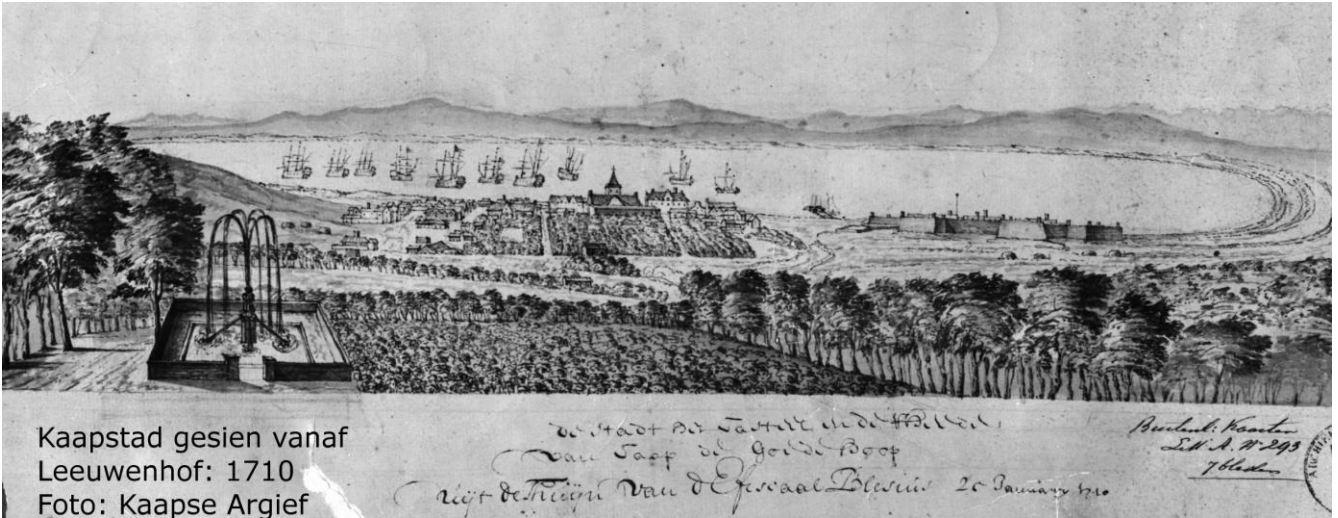 Kaapstad gesien vanaf
Leeuwenhof: 1710
Foto: Kaapse Argief
de Stadt
van Caap de Goede Hoop
uijt de Thuijn van d'Efiscaal Blesius January 1710
Kaarten
Litt. A. Nº 293
7 bladen